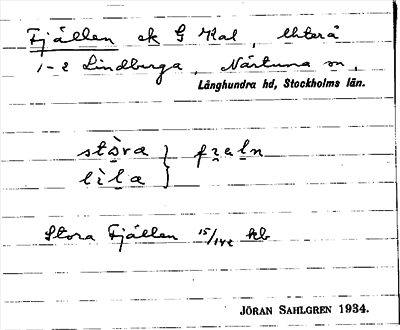 Fjällen ek G Kal, Uterå
1-2 Lindberga, Närtuna sn,
Långhundra hd, Stockholms län.
stòra } fzeln
lìla
Stora Fjällen 15/142 kb
JÖRAN SAHLGREN 1934.